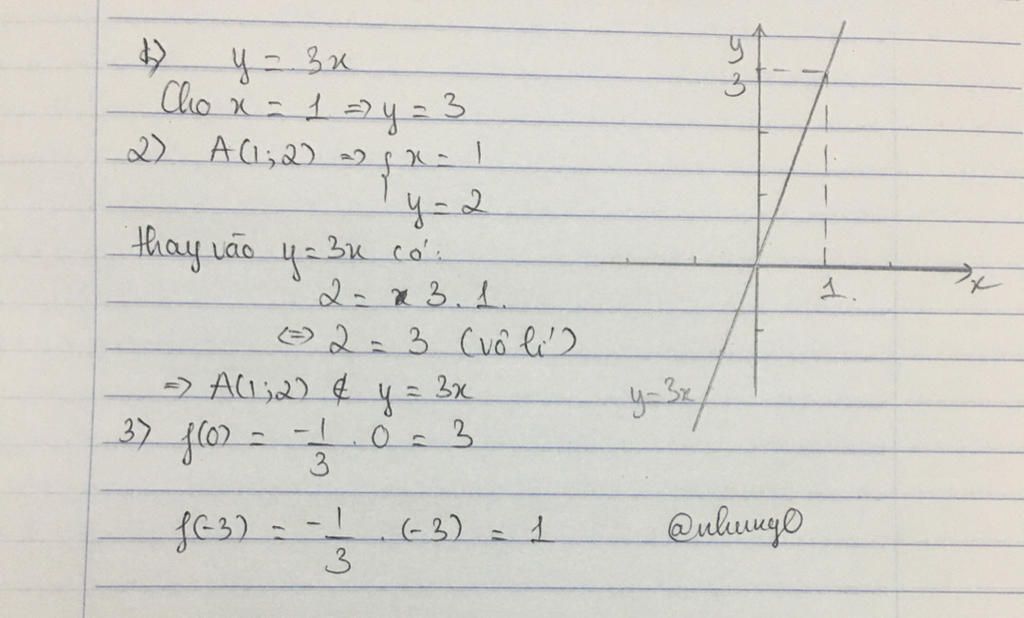 1) y = 3x
Cho x = 1 => y = 3
2) A(1;2) => { x = 1
y = 2
thay vào y = 3x có:
2 = 3 . 1.
<=> 2 = 3 (vô lí)
=> A(1;2) ∉ y = 3x
3) f(0) = -1/3 . 0 = 3
f(-3) = -1/3 . (-3) = 1
@nhungO
y
3
1.
x
y=3x